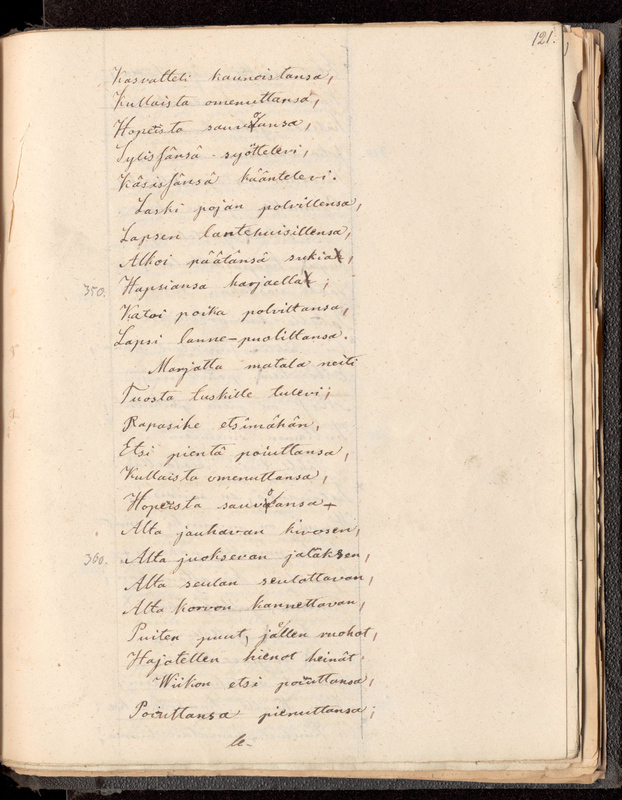 121.
Kasvatteti kaunoistansa,
Kullaista omenuttansa,
Hopeista sauvoansa,
Sylissänsä syöttelevi,
Käsissänsä kääntelevi.
Laski pojan polvillensa,
Lapsen lantehuisillensa,
Alkoi päätänsä sukia,
350. Hapsiansa harjaella;
Katoi poika polviltansa,
Lapsi lanne-puoliltansa.
Marjatta matala neiti
Tuosta tuskille tulevi;
Rapasihe etsimähän,
Etsi pientä poiuttansa,
Kullaista omenuttansa,
Hopeista sauvoansa
Alta jauhavan kivosen,
360. Alta juoksevan jalaksen,
Alta seulan seulottavan,
Alta korvon kannettavan,
Puiten puut, jallen ruohot,
Hajotellen hienot heinät.
Wiikon etsi poiuttansa,
Poiuttansa pienuttansa;